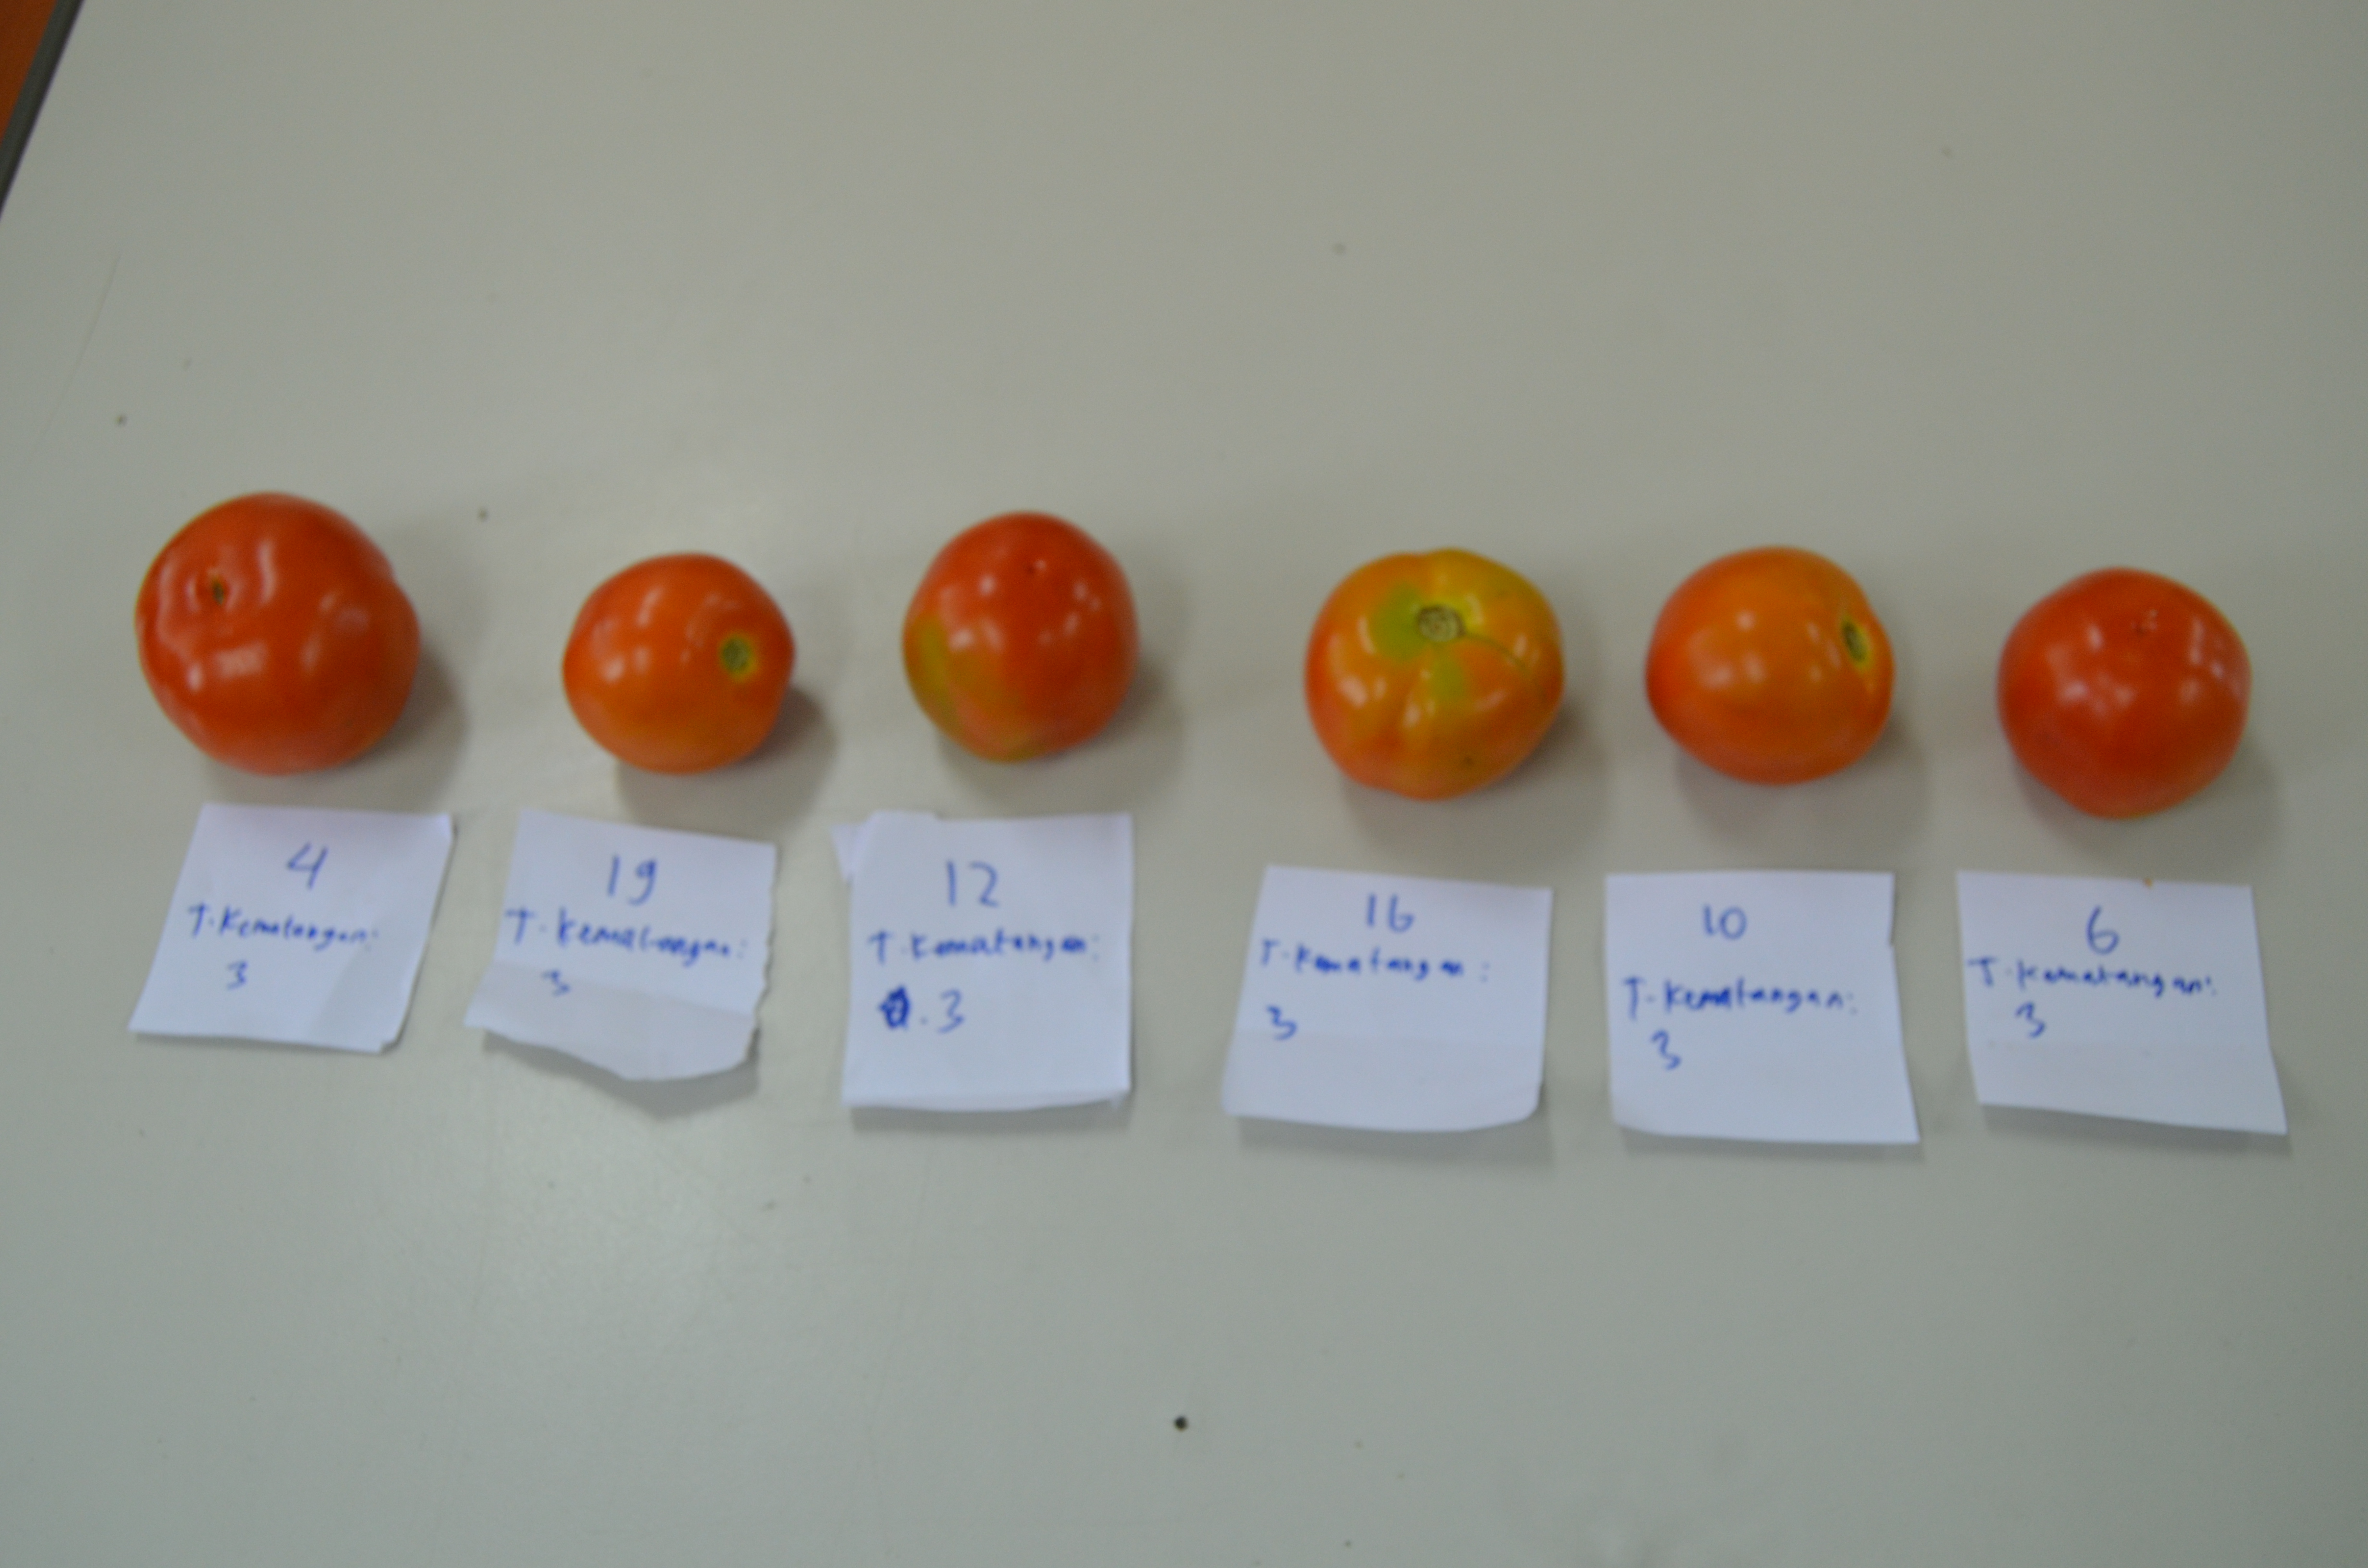 4
T. Kematangan:
3
19
T. Kematangan:
3
12
T. Kematangan:
. 3
16
T. Kematangan:
3
10
T. Kematangan:
3
6
T. Kematangan:
3